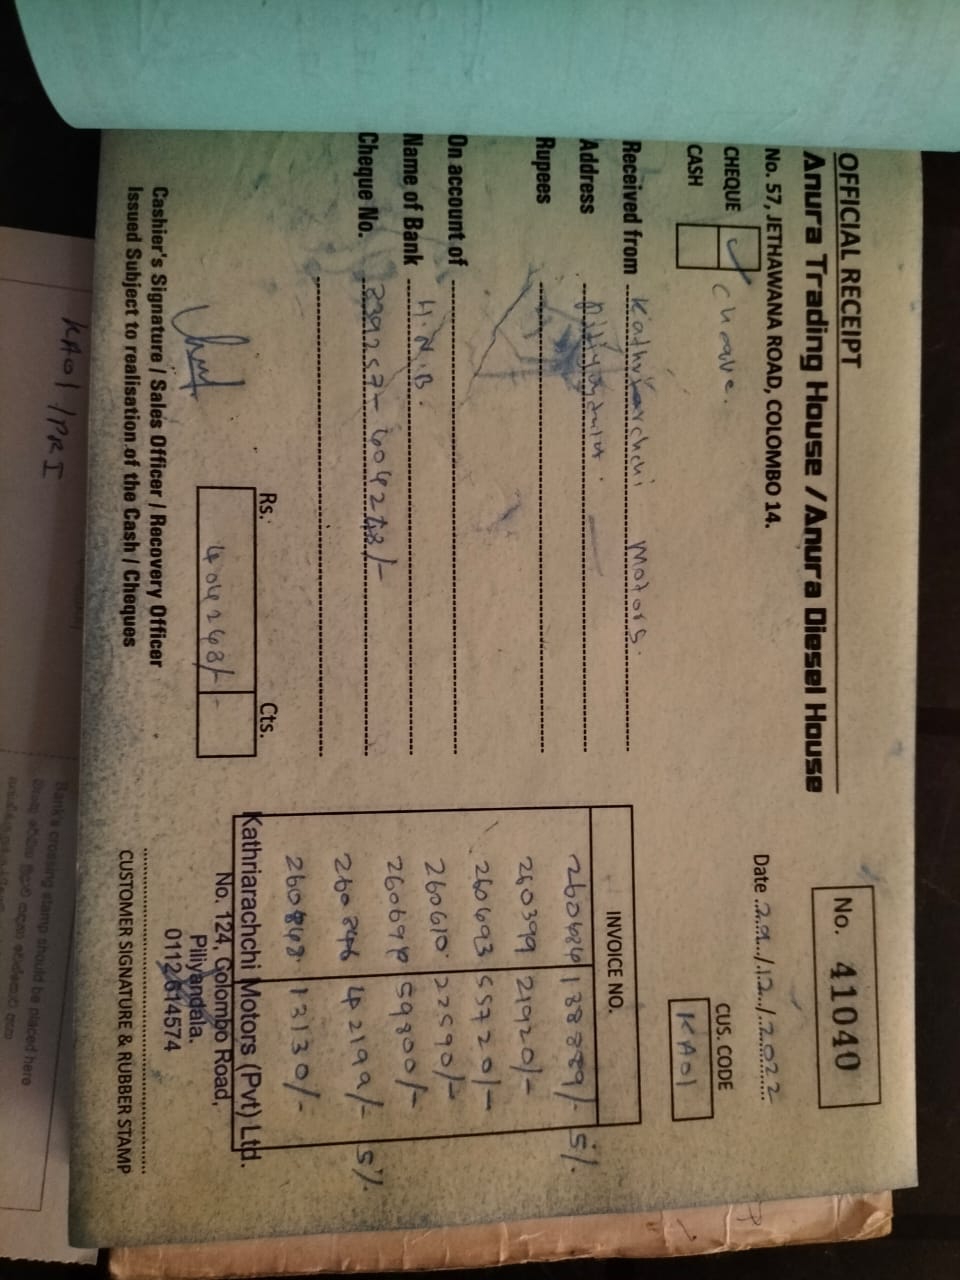 OFFICIAL RECEIPT
No. 41040
Anura Trading House / Anura Diesel House
No. 57, JETHAWANA ROAD, COLOMBO 14.
Date 29/12/2022
CHEQUE ✓
CASH
CUS. CODE
KA01
Received from Kathriarchchi Motors.
Address
Rupees
On account of
Name of Bank H.N.B.
Cheque No. 239257-
Rs. Cts.
404243/-
INVOICE NO.
188889/- 5%
260399 21920/-
260493 55720/-
260610 22590/-
59800/-
42199/- 5%
260848 13130/-
Kathriarachchi Motors (Pvt) Ltd.
No. 124, Colombo Road,
Piliyandala.
0112614574
Cashier's Signature / Sales Officer / Recovery Officer
Issued Subject to realisation of the Cash / Cheques
CUSTOMER SIGNATURE & RUBBER STAMP
KA01/PRI
Banks crossing stamp should be placed here